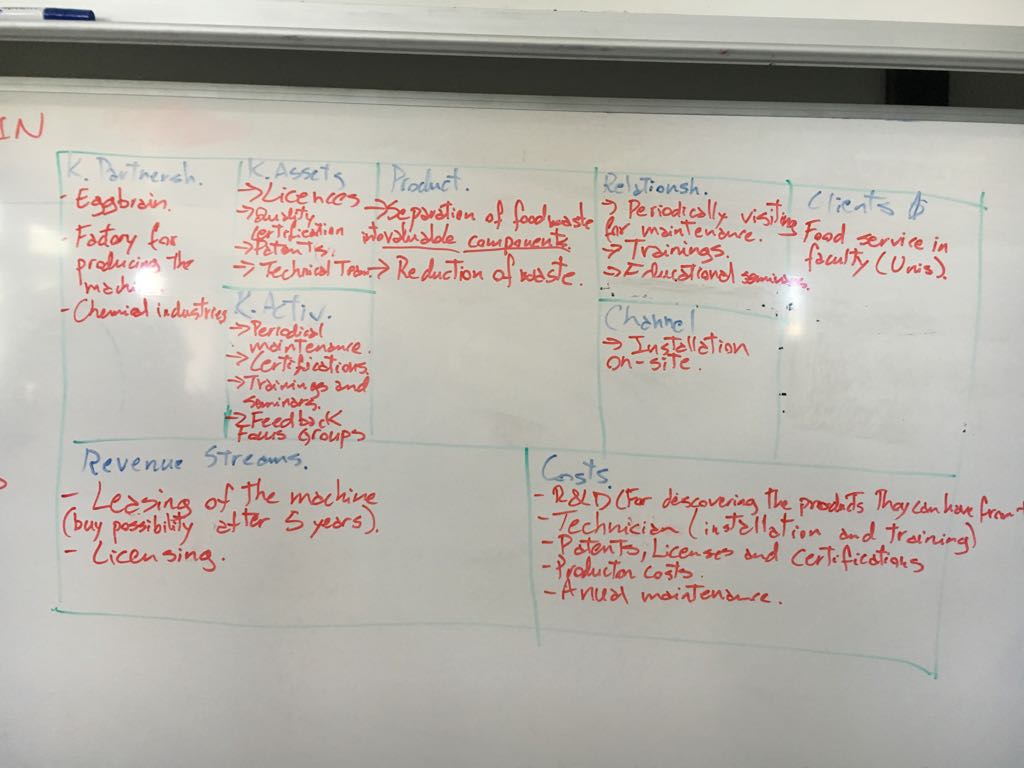 IN
K. Partnersh.
- Eggbrain.
- Factory for
producing the
machine.
- Chemical industries
K. Assets
→ Licences
→ Quality
certification
→ Patents.
→ Technical Team
K. Activ.
→ Periodical
maintenance.
→ Certifications.
→ Trainings and
seminars.
→ Feedback
Focus Groups
Product.
→ Separation of food waste
into valuable components.
→ Reduction of waste.
Relationsh.
→ Periodically visiting
for maintenance.
→ Trainings.
→ Educational seminars.
Channel
→ Installation
on-site.
Clients $
- Food service in
faculty (Unis).
Revenue Streams.
- Leasing of the machine
(buy possibility after 5 years).
- Licensing.
Costs.
- R&D (For descovering the products they can have from
- Technician (installation and training)
- Patents, Licenses and certifications
- Productor costs.
- Anual maintenance.